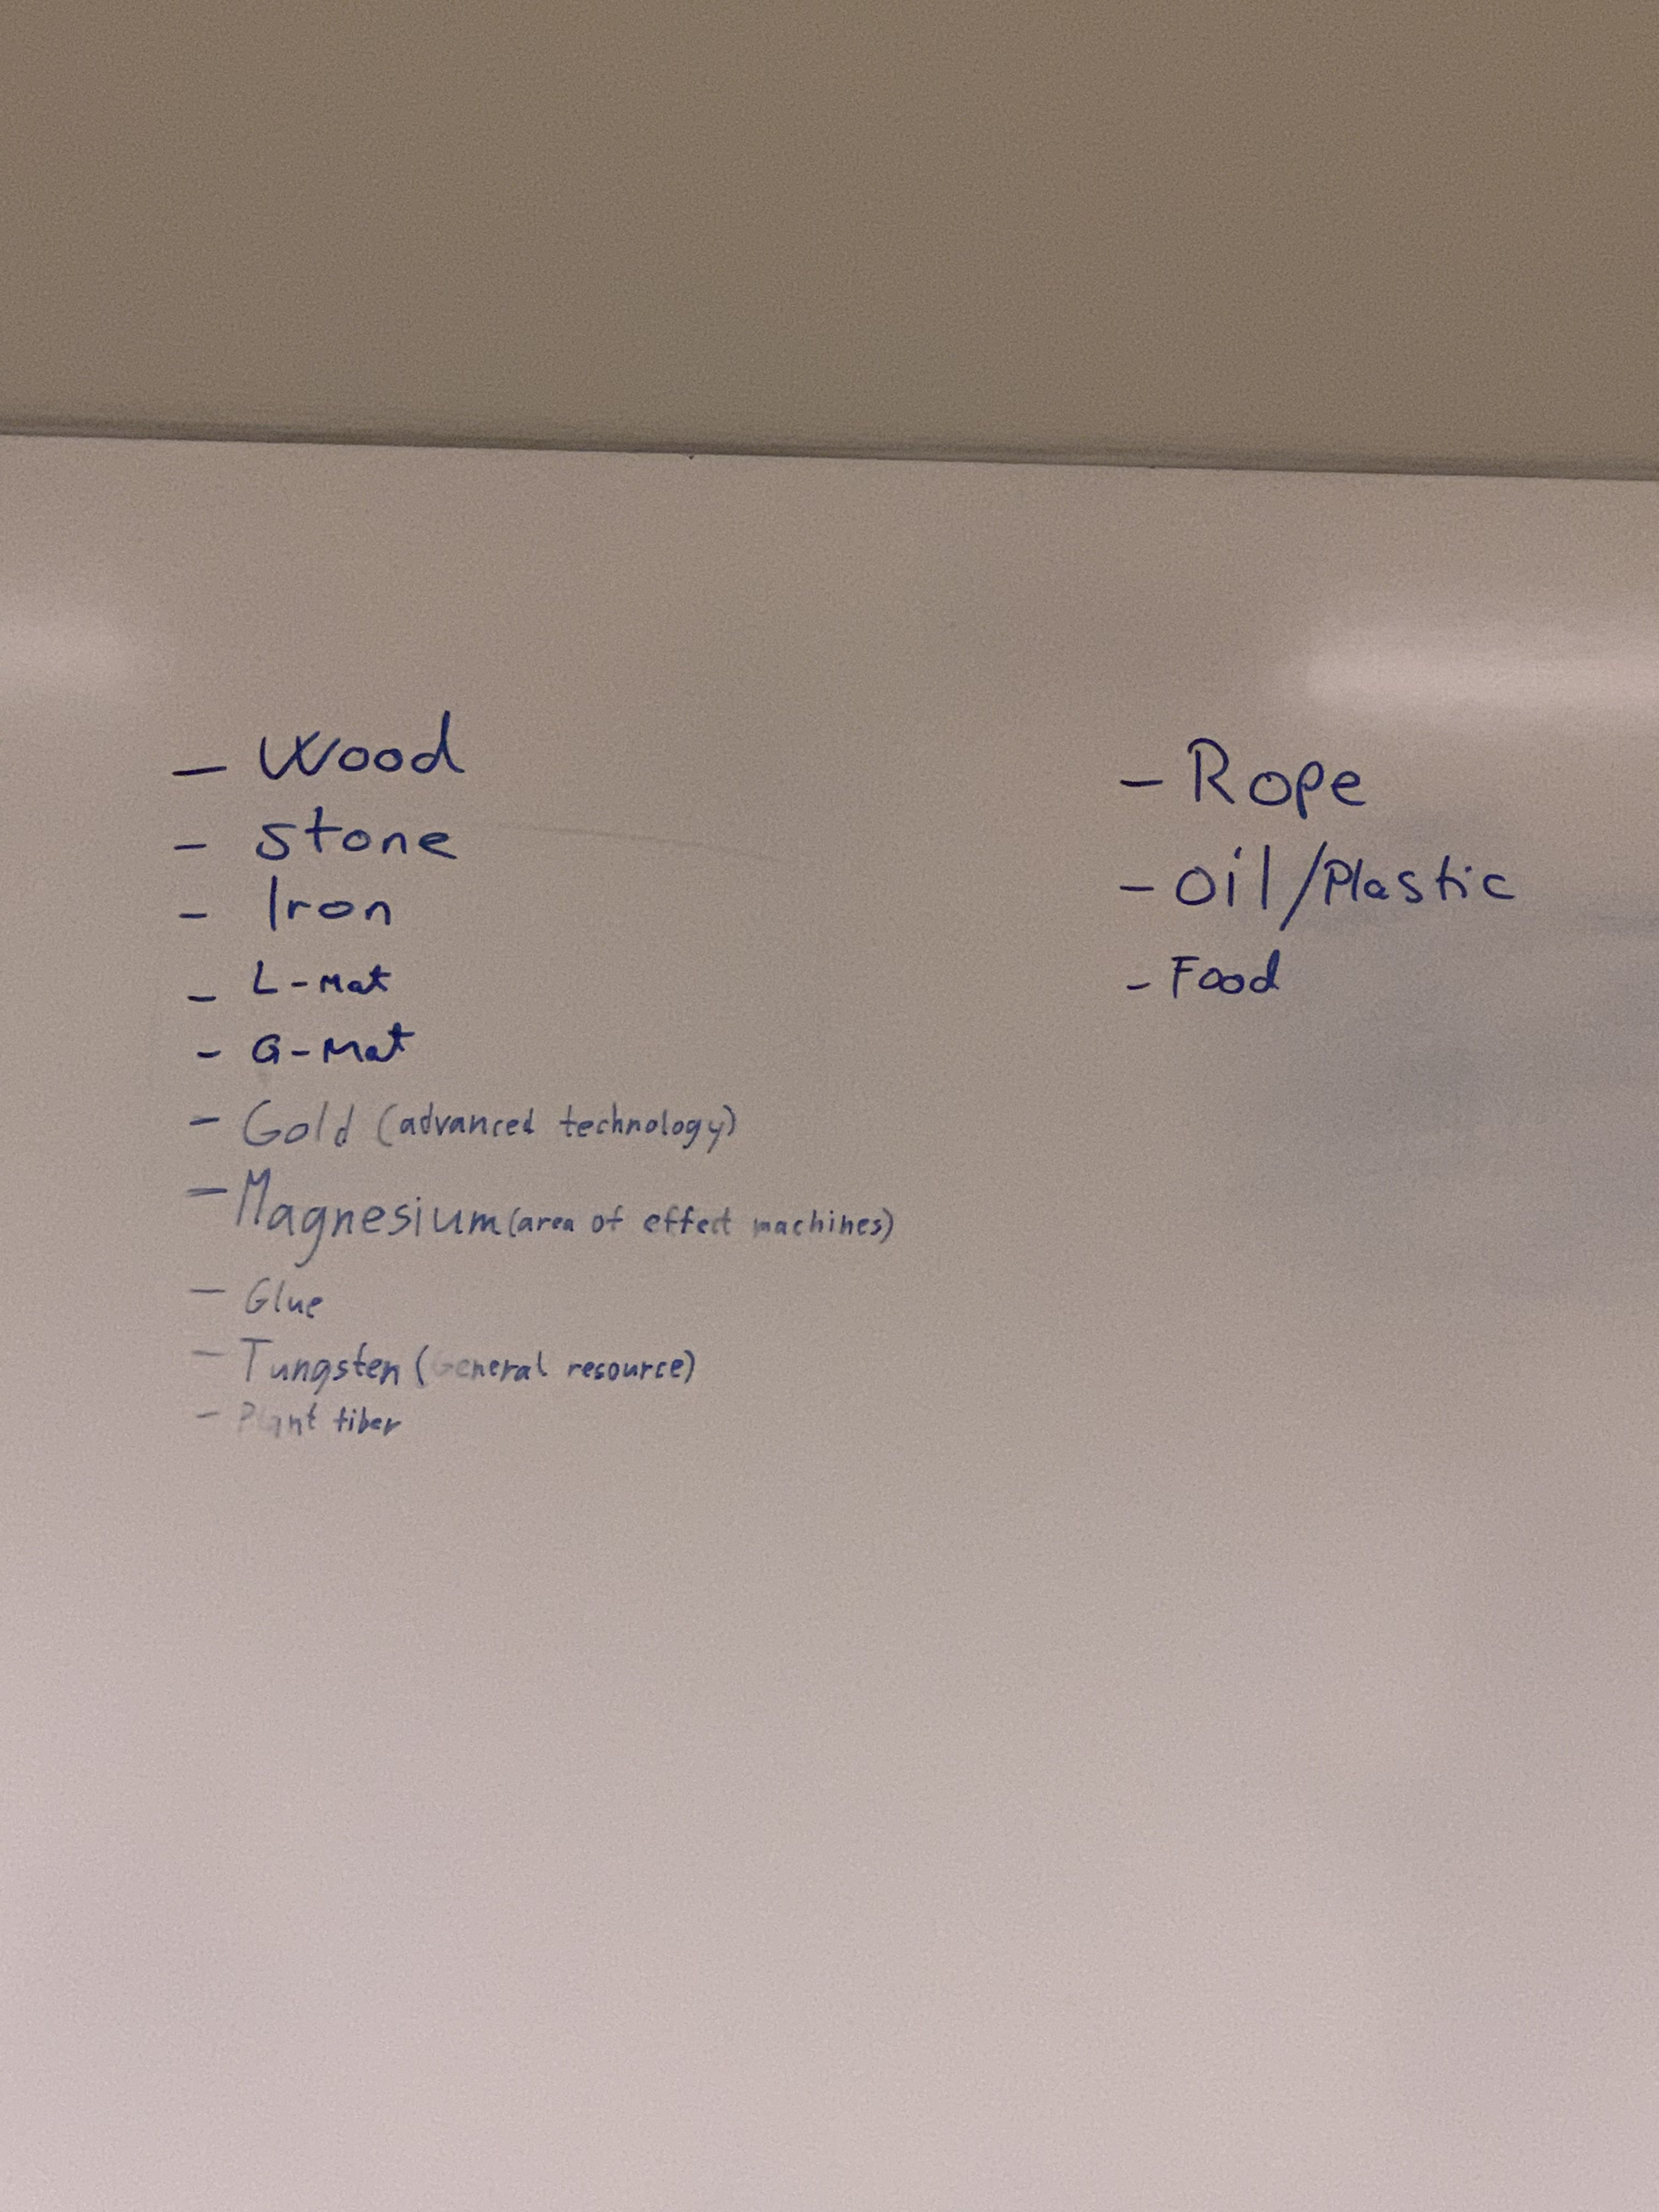 - Wood
- Stone
- Iron
- L-Mat
- G-Mat
- Gold (advanced technology)
- Magnesium (area of effect machines)
- Glue
- Tungsten (General resource)
- Plant fiber
- Rope
- Oil/Plastic
- Food